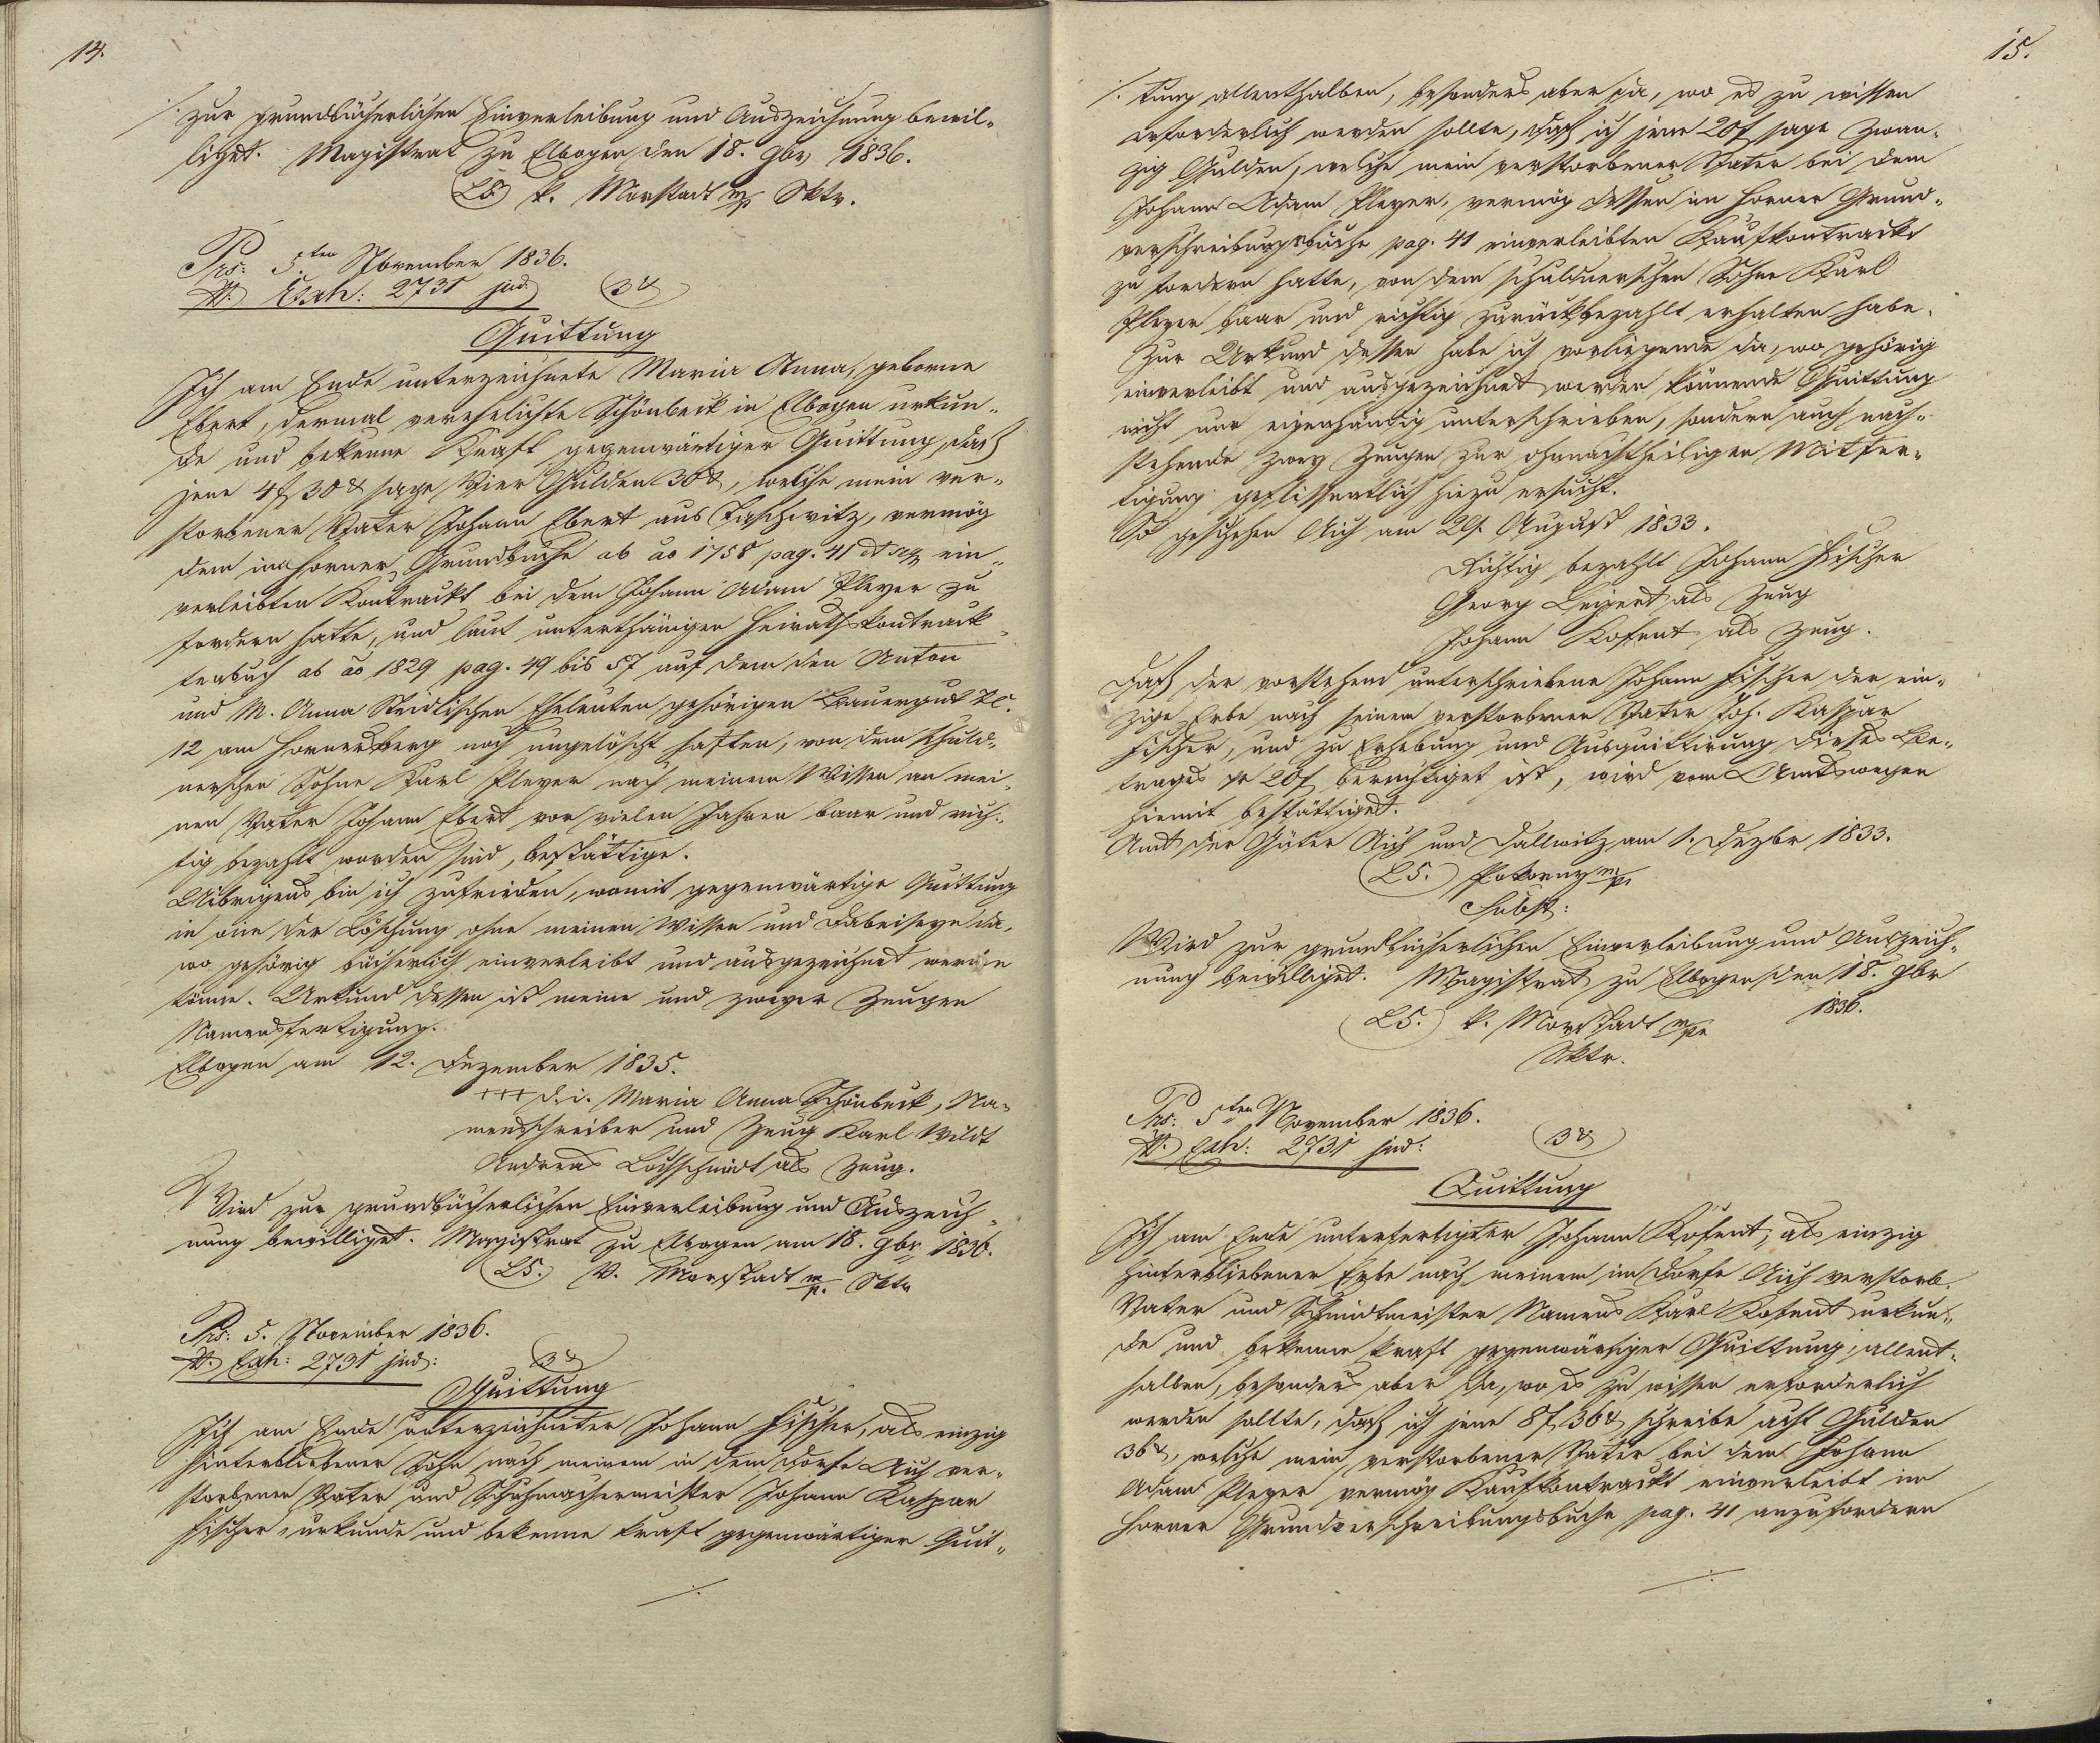 14.
./. zur grundbücherlichen Einverleibung und Auszeichnung bewil-
liget. Magistrat zu Elbogen den 18. 9br 1836.
LS. V. Morstadt m/p Sktr.
Prs: 5ten November 1836.
N. Exh: 2731 jud. 3 x
Quittung
Ich am Ende unterzeichnete Maria Anna, geborne
Ebert, dermal verehelichte Schönbeck in Elbogen urkun-
de und bekenne Kraft gegenwärtiger Quittung, daß
jene 4 f 30 x sage Vier Gulden 30 x, welche mein ver-
storbener Vater Johann Ebert aus Taschwitz, vermög
dem im Horner Grundbuche ab ao 1758 pag. 41 et seq ein-
verleibten Kontrackt bei dem Johann Adam Pleyer zu
fordern hatte, und laut unterthänigen Heirathskontrack-
tenbuch ab ao 1829 pag. 49 bis 57 auf dem den Anton
und M. Anna Steidlischen Eheleuten gehörigen Bauerngut NC.
12 am Hornerberg noch ungelöscht haften, von dem schuld-
nerschen Sohne Karl Pleyer nach meinem Wissen an mei-
nen Vater Johann Ebert vor vielen Jahren baar und rich-
tig bezahlt worden sind, bestättige.
Uibrigens bin ich zufrieden, womit gegenwärtige Quittung
in vim der Löschung ohne meinen Wissen und Dabeiseyn da,
wo gehörig bücherlich einverleibt und ausgezeichnet werden
könne. Urkund dessen ist meine und zweyer Zeugen
Namensfertigung.
Elbogen am 12. Dezember 1835.
+++ d. i. Maria Anna Schönbeck, Na-
mensschreiber und Zeug Karl Wildt
Andreas Loihschmidt als Zeug.
Wird zur grundbücherlichen Einverleibung und Auszeich-
nung bewilliget. Magistrat zu Elbogen am 18. 9br 1836.
LS. V. Morstadt m/p. Sktr
Prs: 5. November 1836.
N. Exh: 2731 jud: 3 x
Quittung
Ich am Ende unterzeichneter Johann Fischer, als einzig
hinterbliebener Sohn nach meinem in dem Dorfe Aich ver-
storbenen Vater und Schuhmachermeister Johann Kaspar
Fischer, urkunde und bekenne kraft gegenwärtiger Quit-
./.
15.
./. tung allenthalben, besonders aber da, wo es zu wissen
erforderlich werden sollte, daß ich jene 20 f sage Zwan-
zig Gulden, welche mein verstorbener Vater bei dem
Johann Adam Pleyer, vermög dessen im Horner Grund-
verschreibungsbuche pag. 41 einverleibten Kaufkontrackt
zu fordern hatte, von dem schuldnerschen Sohne Karl
Pleyer baar und richtig zurückbezahlt erhalten habe.
Zur Urkund dessen habe ich vorliegende da, wo gehörig
einverleibt und ausgezeichnet werden könnende Quittung
nicht nur eigenhändig unterschrieben, sondern auch nach-
stehende zwey Zeugen zur ohnnachtheiligen Mitfer-
tigung geflissentlich hiezu ersucht.
So geschehen Aich am 29. August 1833.
Richtig bezahlt Johann Fischer
Georg als Zeug
Johann Kofent als Zeug.
Daß der vorstehend unterschriebene Johann Fischer der ein-
zige Erbe nach seinem verstorbenen Vater Joh. Kaspar
Fischer, und zu Erhebung und Ausquittirung dieses Be-
trages pr 20 f berechtiget ist, wird vom Amtswegen
hiemit bestättiget.
Amt der Güter Aich und Dallwitz am 1. Dezbr 1833.
LS. Pokorny m/p.
Subst:
Wird zur grundbücherlichen Einverleibung und Auszeich-
nung bewilliget. Magistrat zu Elbogen den 18. 9br
1836.
LS. V. Morstadt m/p
Sktr.
Prs: 5ten November 1836.
N. Exh: 2731 jud: 3 x
Quittung
Ich am Ende unterfertigter Johann Kofent, als einzig
hinterbliebener Erbe nach meinem im Dorfe Aich verstorb.
Vater und Schmidtmeister Namens Karl Kofent urkun-
de und bekenne kraft gegenwärtiger Quittung, allent-
halben, besonders aber da, wo es zu wissen erforderlich
werden sollte, daß ich jene 8 f 36 x schreibe acht Gulden
36 x, welche mein verstorbener Vater bei dem Johann
Adam Pleyer vermög Kaufkontrackt einverleibt im
Horner Grundverschreibungsbuche pag. 41 anzufordern
./.